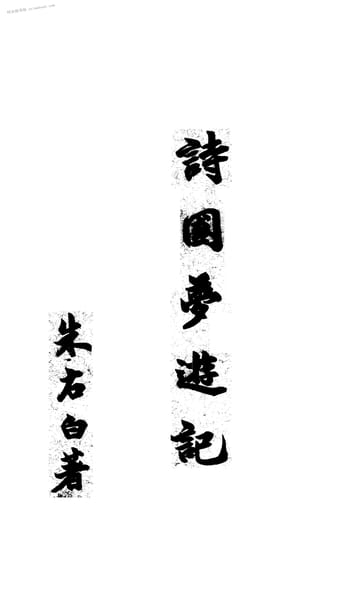 詩國夢遊記
朱右白著